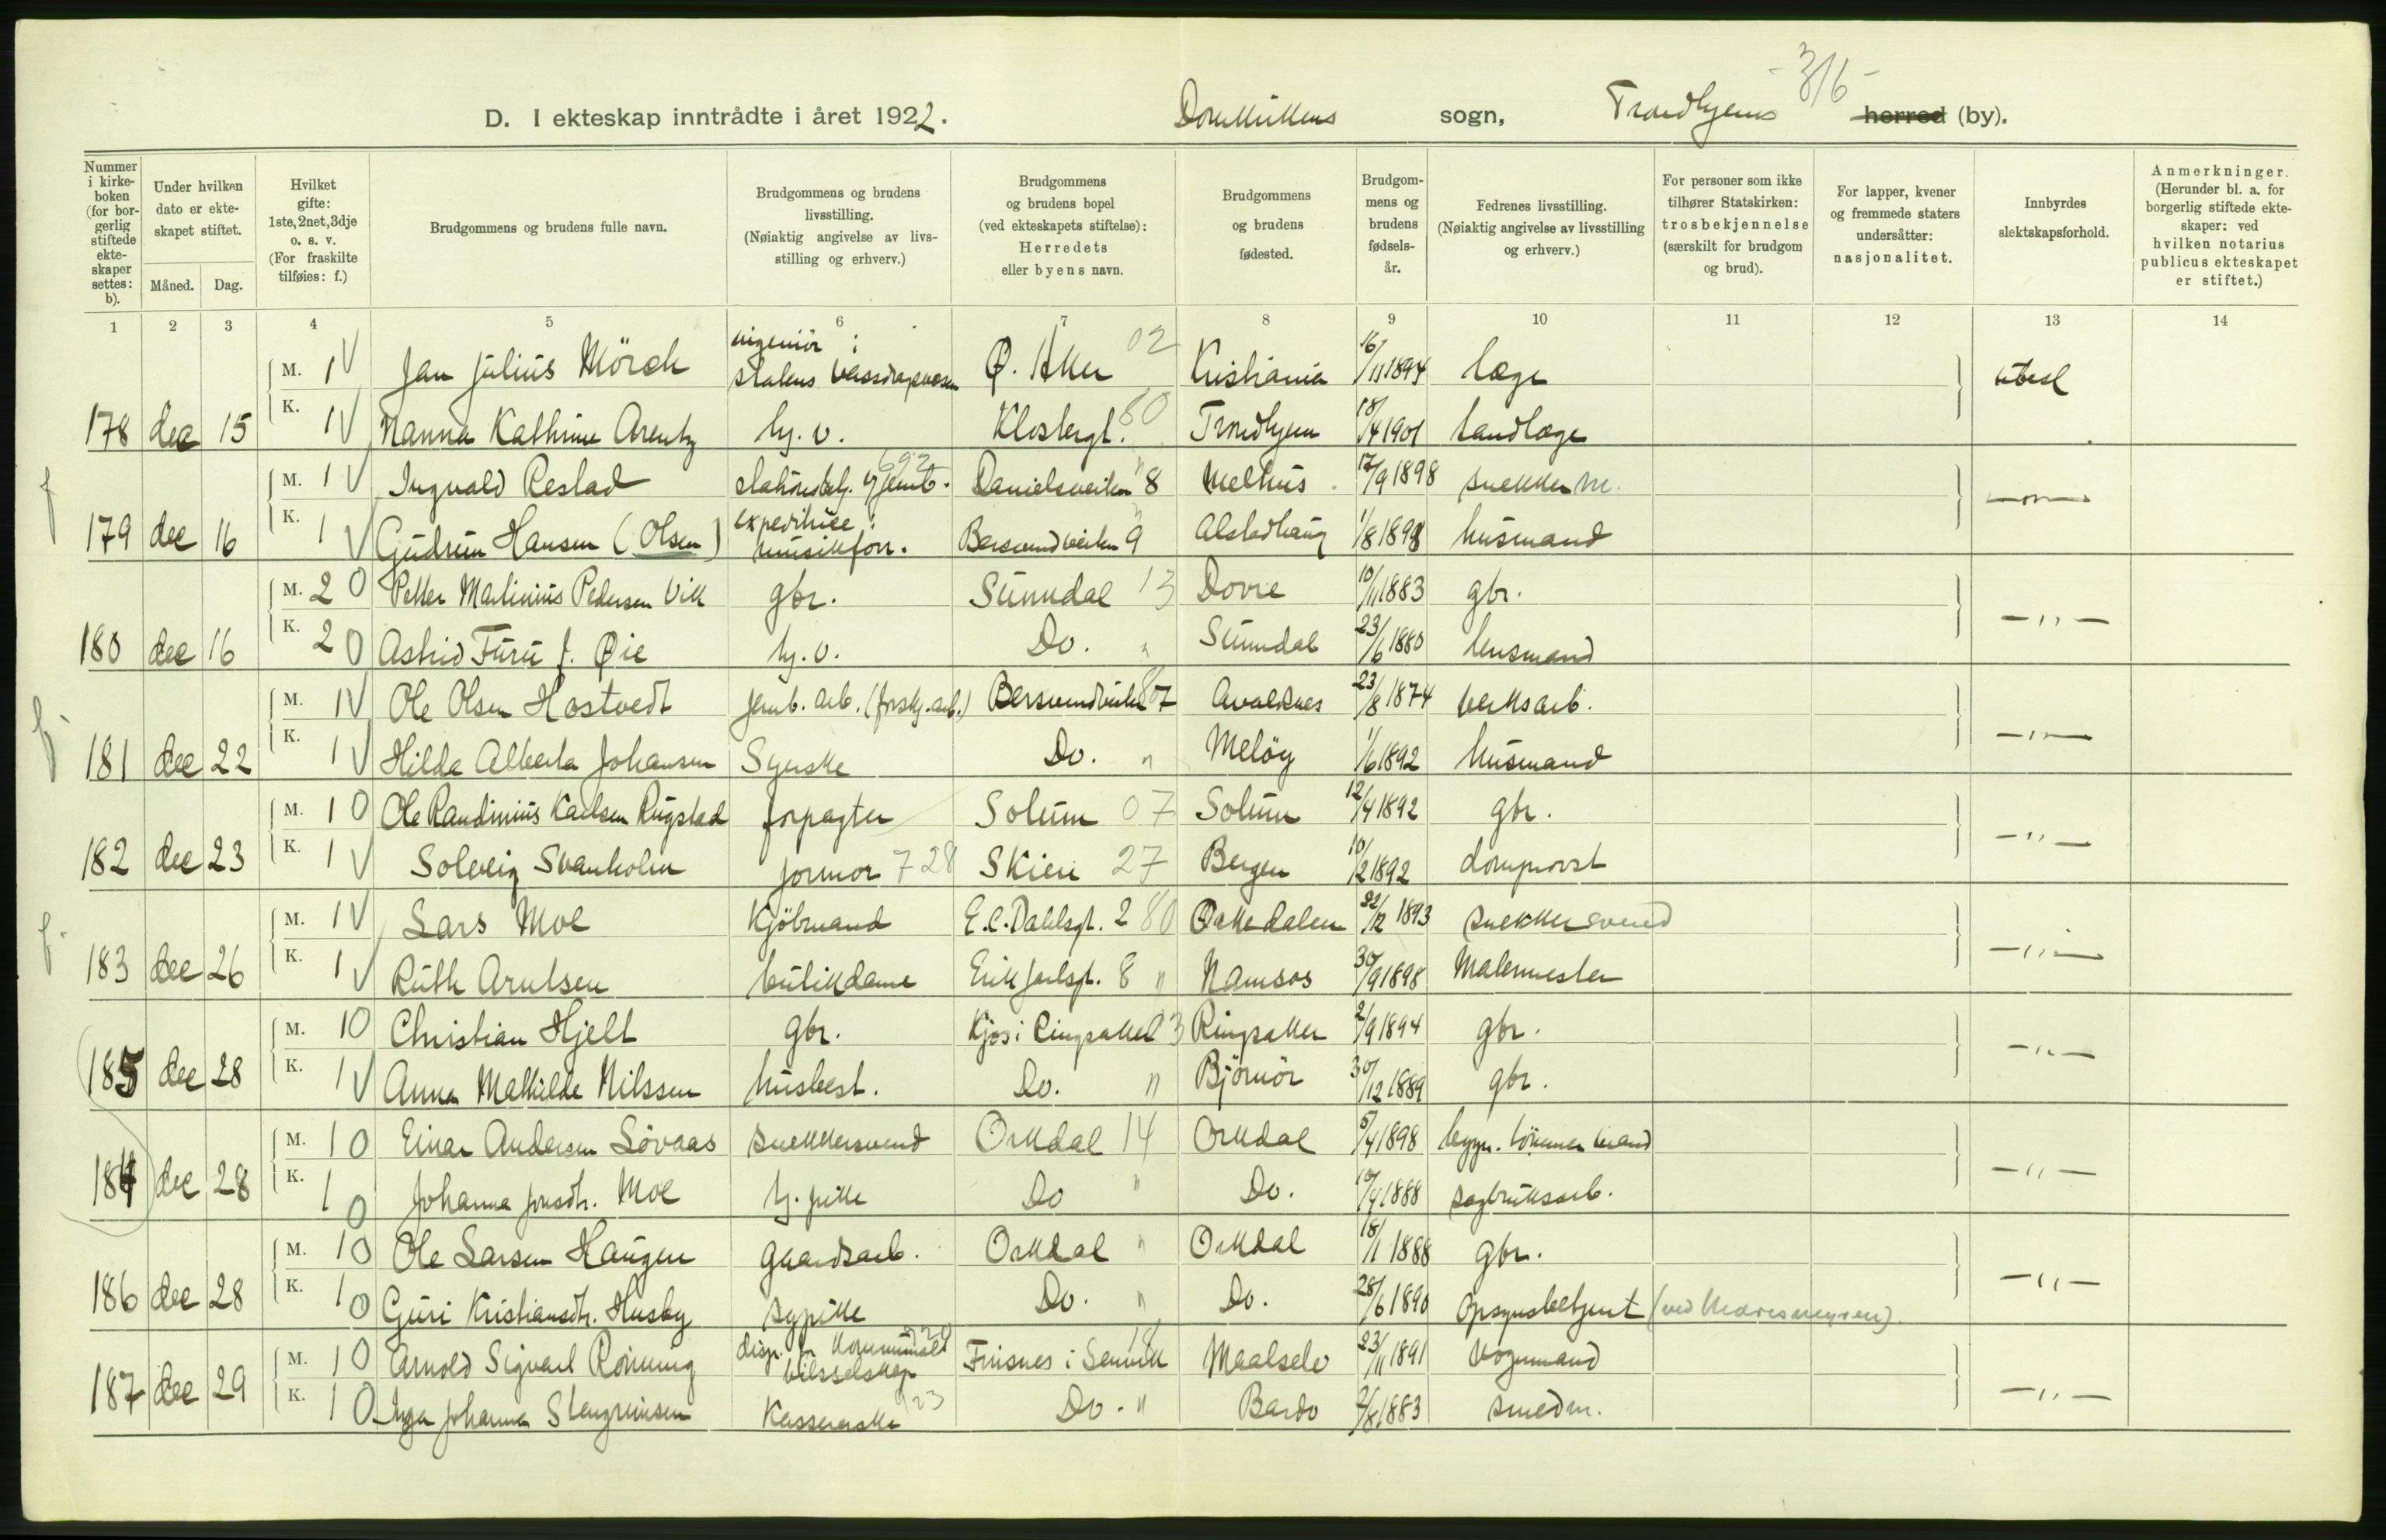 -3/6-
D. I ekteskap inntrådte i året 1922. Domkirkens sogn, Trondhjems herred (by).
Nummer i kirkeboken (for borgerlig stiftede ekteskaper settes: b).
Under hvilken dato er ekteskapet stiftet.
Måned. Dag.
Hvilket gifte: 1ste, 2net, 3dje o. s. v. (For fraskilte tilføies: f.)
Brudgommens og brudens fulle navn.
Brudgommens og brudens livsstilling. (Nøiaktig angivelse av livsstilling og erhverv.)
Brudgommens og brudens bopel (ved ekteskapets stiftelse): Herredets eller byens navn.
Brudgommens og brudens fødested.
Brudgommens og brudens fødselsår.
Fedrenes livsstilling. (Nøiaktig angivelse av livsstilling og erhverv.)
For personer som ikke tilhører Statskirken: trosbekjennelse (særskilt for brudgom og brud).
For lapper, kvener og fremmede staters undersåtter: nasjonalitet.
Innbyrdes slektskapsforhold.
Anmerkninger. (Herunder bl. a. for borgerlig stiftede ekteskaper: ved hvilken notarius publicus ekteskapet er stiftet.)
1 2 3 4 5 6 7 8 9 10 11 12 13 14
M. 1 V Jan Julius Mörch ingeniör i statens vassdragsvæsen Ø. Aker 02 Kristiania 16/11 1894 læge ubesl
178 dec 15 K. 1 V Nanna Kathrine Arentz hj. v. Klostergt. 80 Trondhjem 18/4 1901 tandlæge
f M. 1 V Ingvald Restad stationsbetj. v/jernb. 692 Danielsveien 8 " Melhus 17/9 1898 snekker m. —"—
179 dec 16 K. 1 V Gudrun Hansen (Olsen) expeditrice i musikforr. Bersvendveien 9 " Alstadhaug 1/8 1898 husmand
M. 2 0 Petter Martinius Pedersen Vik gbr. Sunndal 13 Dovre 10/11 1883 gbr. —"—
180 dec 16 K. 2 0 Astrid Furu f. Øie hj. v. Do. " Sunndal 23/6 1880 lensmand
f. M. 1 V Ole Olsen Hostvedt jernb. arb. (forskj. arb.) Bersvendveien 7 80 Avaldsnes 23/8 1874 verksarb. —"—
181 dec 22 K. 1 V Hilda Alberta Johansen Syerske Do. " Meløy 1/6 1892 husmand
M. 1 0 Ole Randinius Karlsen Rugstad forpagter Solum 07 Solum 12/4 1892 gbr. —"—
182 dec 23 K. 1 V Solveig Svanholm jormor 728 Skien 27 Bergen 10/2 1892 domprovst
f. M. 1 V Lars Moe Kjöbmand E.C. Dahlsgt. 2 80 Orkedalen 22/12 1893 snekkersvend —"—
183 dec 26 K. 1 V Ruth Arntsen butikdame Erik Jarlsgt. 8 " Namsos 30/9 1898 Malermester
M. 1 0 Christian Hjelt gbr. Kjos i Ringsaker 03 Ringsaker 2/9 1894 gbr. —"—
185 dec 28 K. 1 V Anna Mathilde Nilssen husbest. Do. " Björnör 30/12 1889 gbr.
M. 1 0 Einar Andersen Lövaas snekkersvend Orkdal 14 Orkdal 5/4 1898 bygn. tömmermand —"—
184 dec 28 K. 1 0 Johanna Jonsdtr. Moe hj. pike Do " Do. 10/4 1888 sagbruksarb.
M. 1 0 Ole Larsen Haugen gaardsarb. Orkdal " Orkdal 18/1 1888 gbr. —"—
186 dec 28 K. 1 0 Guri Kristiansdtr. Husby sypike Do. " Do. 28/6 1890 Opsynsbetjent
M. 1 0 Arnold Sigvart Rönning disp. for kommunalt bilsselskap Finsnes i Senvik 18 Maalselv 23/11 1891 Vognmand —"—
187 dec 29 K. 1 0 Inga Johanna Stengrimsen Kassererske 923 Do. " Bardo 2/8 1883 smedm.